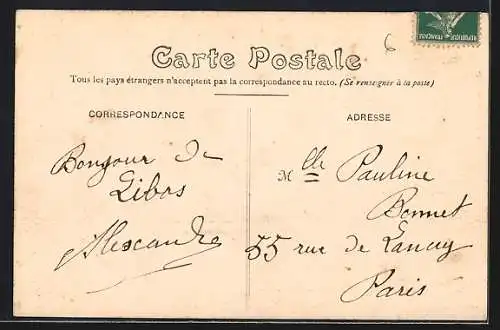 RÉPUBLIQUE FRANÇAISE
6
Carte Postale
Tous les pays étrangers n'acceptent pas la correspondance au recto. (Se renseigner à la poste)
CORRESPONDANCE
ADRESSE
Bonjour de
Libos
Alexandre
Mlle Pauline
Bonnet
55 rue de Lancry
Paris